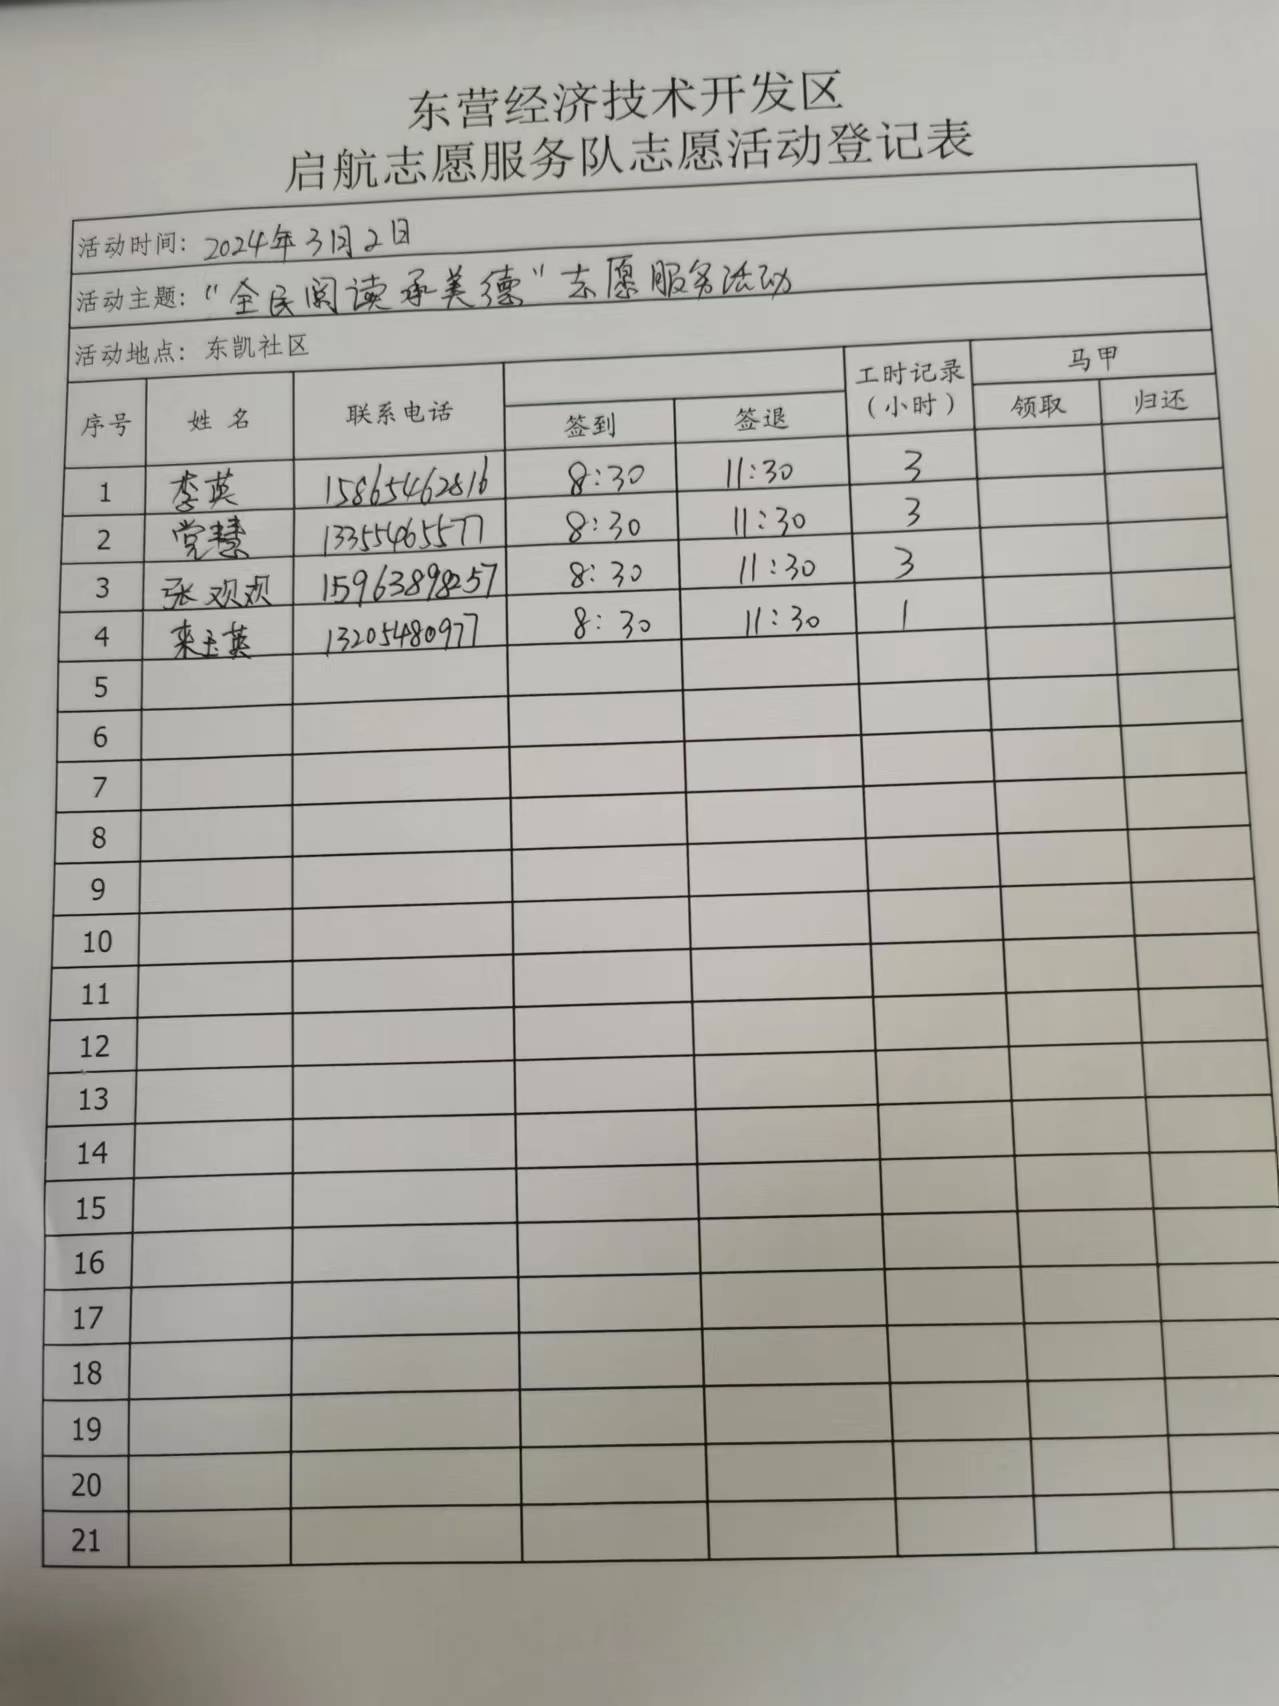 东营经济技术开发区
启航志愿服务队志愿活动登记表
活动时间：2024年3月2日
活动主题：“全民阅读承美德”志愿服务活动
活动地点：东凯社区
序号 姓 名 联系电话 签到 签退 工时记录（小时） 马甲 领取 归还
1 李英 15865462816 8:30 11:30 3
2 党慧 13355465577 8:30 11:30 3
3 张观观 15963898257 8:30 11:30 3
4 来玉英 13205480977 8:30 11:30 1
5
6
7
8
9
10
11
12
13
14
15
16
17
18
19
20
21